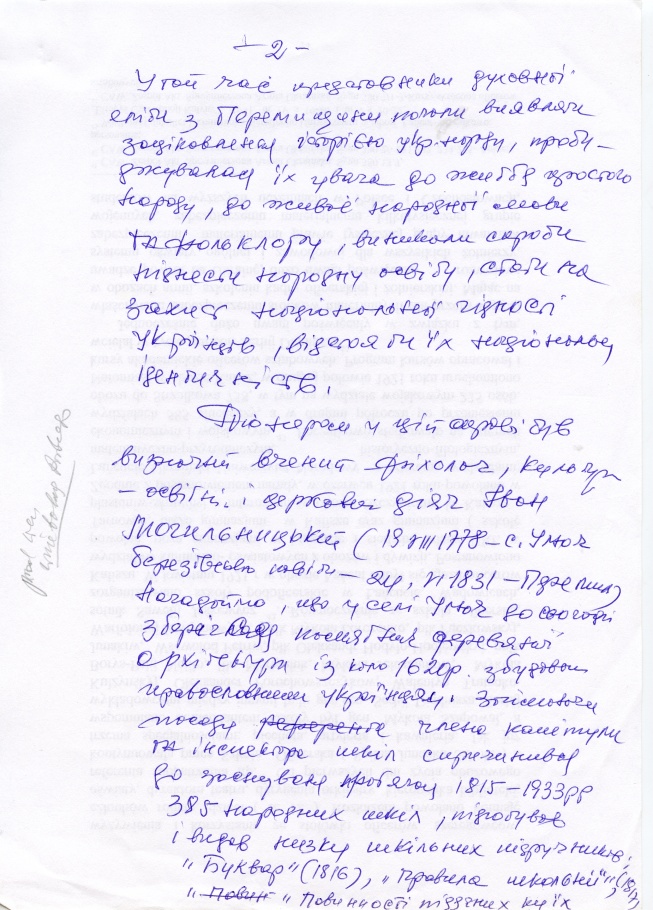 - 2 -
У той час представники духовної
еліти з Перемищини почали виявляти
зацікавлення історією укр. народу, пробу-
джувалася їх увага до життя простого
народу, до живої народної мови
та фольклору, виникали спроби
піднести народну освіту, стати на
захист національної гідності
українців, відстояти їх національну
ідентичність.
Піонером у цій справі був
визначний вчений філолог, культур
-освітній і державний діяч Іван
Могильницький (19 VIII 1778 – с. Улюч
Березівського – 24. VI 1831 – Перемишль)
Нагадаймо, що у селі Улюч до сьогодні
зберігся пам'ятник деревяної
архітектури із коло 1620р. збудован
православними українцями. Займаючи
посаду референта члена капітули
та інспектора шкіл спричинився
до заснування протягом 1815–1933рр
385 народних шкіл, підготував
і видав низку шкільних підручників:
"Буквар" (1816), "Правила шкільнії", (1817)
"Повин "Повинності підданих ку їх